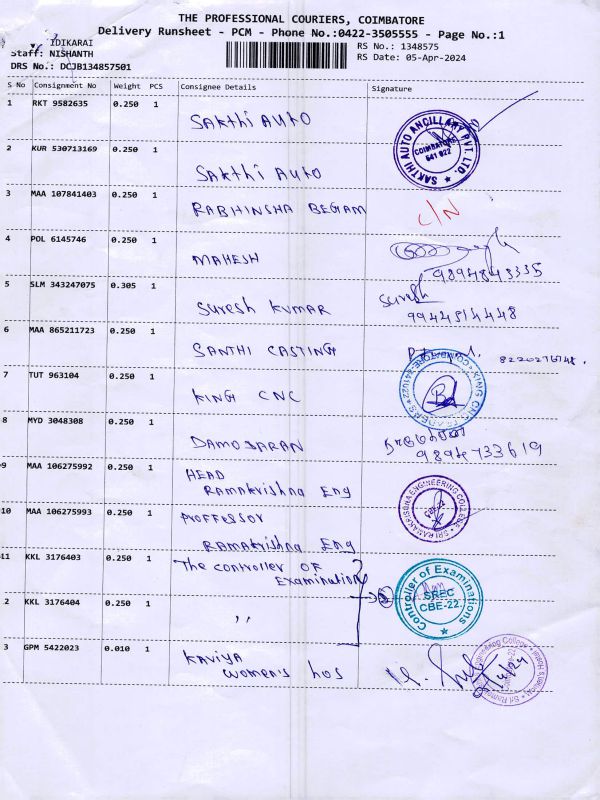 THE PROFESSIONAL COURIERS, COIMBATORE
Delivery Runsheet - PCM - Phone No.:0422-3505555 - Page No.:1
IDIKARAI
Staff: NISHANTH
DRS No.: DCJB134857501
RS No.: 1348575
RS Date: 05-Apr-2024
S No Consignment No Weight PCS Consignee Details Signature
1 RKT 9582635 0.250 1 Sakthi Auto
SAKTHI AUTO ANCILLARY PVT. LTD. COIMBATORE 641 022
2 KUR 530713169 0.250 1 Sakthi Auto
3 MAA 107841403 0.250 1 RABHINSHA BEGAM C/N
4 POL 6145746 0.250 1 MAHESH
9894843335
5 SLM 343247075 0.305 1 Suresh Kumar Suresh
9944514448
6 MAA 865211723 0.250 1 SANTHI CASTING
7 TUT 963104 0.250 1 KING CNC
KING CNC TRADERS
8 MYD 3048308 0.250 1 DAMODARAN
9894733619
9 MAA 106275992 0.250 1 HEAD
Ramakrishna Eng
SRI RAMAKRISHNA ENGINEERING COLLEGE CBE-22
10 MAA 106275993 0.250 1 Proffessor
Ramakrishna Eng
11 KKL 3176403 0.250 1 The controller OF
Examination
Controller of Examinations SREC CBE-22.
2 KKL 3176404 0.250 1 ,,
3 GPM 5422023 0.010 1 Kaviya
Women's hos